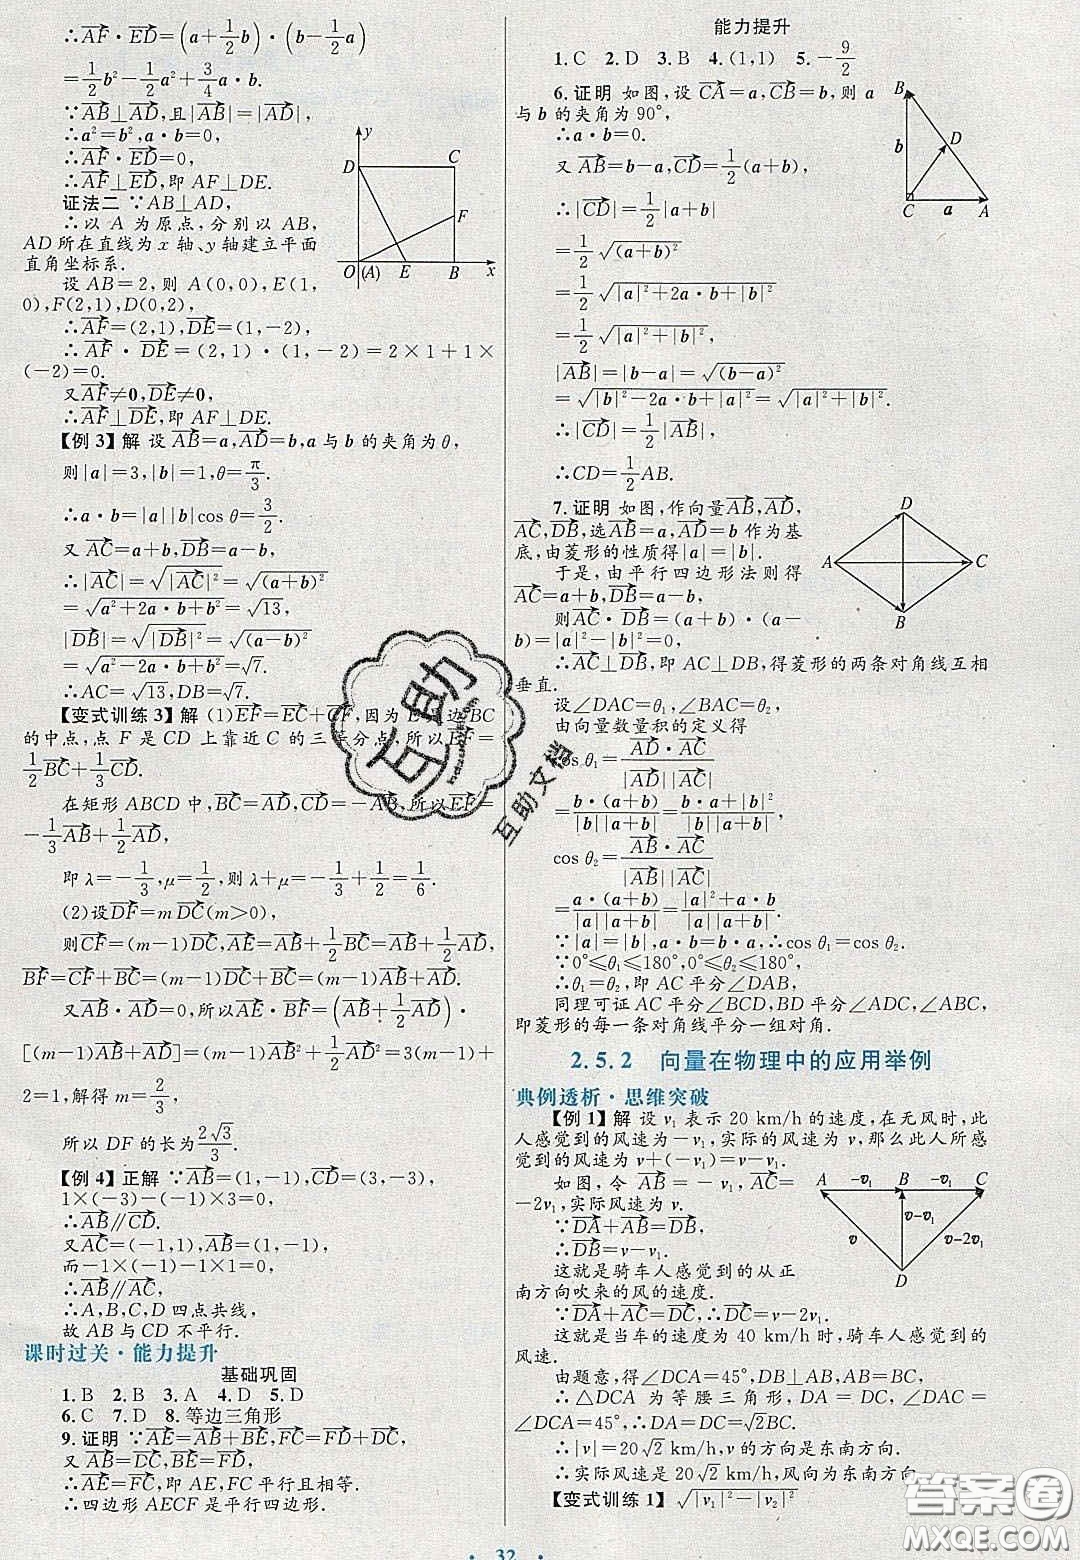 ∴AF·ED=(a+1/2b)·(b-1/2a)
=1/2b²-1/2a²+3/4a·b.
∵AB⊥AD,且|AB|=|AD|,
∴a²=b²,a·b=0,
∴AF·ED=0,
∴AF⊥ED,即 AF⊥DE.
证法二 ∵AB⊥AD,
∴以 A 为原点,分别以 AB,
AD 所在直线为 x 轴、y 轴建立平面
直角坐标系.
设 AB=2,则 A(0,0),E(1,
0),F(2,1),D(0,2),
∴AF=(2,1),DE=(1,-2),
∴AF·DE=(2,1)·(1,-2)=2×1+1×
(-2)=0.
又AF≠0,DE≠0,
∴AF⊥DE,即 AF⊥DE.
y
D C
F
O (A) E B x
【例 3】解 设AB=a,AD=b,a 与 b 的夹角为 θ,
则|a|=3,|b|=1,θ=π/3.
∴a·b=|a||b|cos θ=3/2.
又AC=a+b,DB=a-b,
∴|AC|=√|AC|²=√(a+b)²
=√a²+2a·b+b²=√13,
|DB|=√|DB|²=√(a-b)²
=√a²-2a·b+b²=√7.
∴AC=√13,DB=√7.
【变式训练 3】解 (1)EF=EC+CF,因为 E 边BC
的中点,点 F 是 CD 上靠近 C 的三等分点,所以EF=
1/2BC+1/3CD.
在矩形 ABCD 中,BC=AD,CD=-AB,所以EF=
-1/3AB+1/2AD,
即 λ=-1/3,μ=1/2,则 λ+μ=-1/3+1/2=1/6.
(2)设DF=mDC(m>0),
则CF=(m-1)DC,AE=AB+1/2BC=AB+1/2AD,
BF=CF+BC=(m-1)DC+BC=(m-1)AB+AD.
又AB·AD=0,所以AE·BF=(AB+1/2AD)·
[(m-1)AB+AD]=(m-1)AB²+1/2AD²=3(m-1)+
2=1,解得 m=2/3.
所以 DF 的长为2√3/3.
【例 4】正解 ∵AB=(1,-1),CD=(3,-3),
1×(-3)-(-1)×3=0,
∴AB∥CD.
又AC=(-1,1),AB=(1,-1),
而-1×(-1)-1×1=0,
∴AB∥AC,
∴A,B,C,D 四点共线,
故 AB 与 CD 不平行.
课时过关·能力提升
基础巩固
1.B 2.B 3.A 4.D 5.D
6.C 7.D 8.等边三角形
9.证明 ∵AE=AB+BE,FC=FD+DC,
又AB=DC,BE=FD,
∴AE=FC,即 AE,FC 平行且相等.
∴四边形 AECF 是平行四边形.
能力提升
1.C 2.D 3.B 4.(1,1) 5.-9/2
6.证明 如图,设CA=a,CB=b,则 a
与 b 的夹角为 90°,
∴a·b=0.
又AB=b-a,CD=1/2(a+b),
∴|CD|=1/2|a+b|
=1/2√(a+b)²
=1/2√|a|²+2a·b+|b|²
=1/2√|a|²+|b|²,
|AB|=|b-a|=√(b-a)²
=√|b|²-2a·b+|a|²=√|a|²+|b|².
∴|CD|=1/2|AB|,
∴CD=1/2AB.
B
b D
C a A
7.证明 如图,作向量AB,AD,
AC,DB,选AB=a,AD=b 作为基
底,由菱形的性质得|a|=|b|.
于是,由平行四边形法则得
AC=a+b,DB=a-b,
则AC·DB=(a+b)·(a-
b)=|a|²-|b|²=0,
∴AC⊥DB,即 AC⊥DB,得菱形的两条对角线互相
垂直.
D
A C
B
设∠DAC=θ₁,∠BAC=θ₂,
由向量数量积的定义得
cos θ₁=AD·AC/|AD||AC|
=b·(a+b)/|b||a+b|=a·b+|b|²/|b||a+b|,
cos θ₂=AB·AC/|AB||AC|
=a·(a+b)/|a||a+b|=|a|²+a·b/|a||a+b|.
∵|a|=|b|,a·b=b·a,∴cos θ₁=cos θ₂.
∵0°≤θ₁≤180°,0°≤θ₂≤180°,
∴θ₁=θ₂,即 AC 平分∠DAB,
同理可证 AC 平分∠BCD,BD 平分∠ADC,∠ABC,
即菱形的每一条对角线平分一组对角.
2.5.2 向量在物理中的应用举例
典例透析·思维突破
【例 1】解 设 v₁ 表示 20 km/h 的速度,在无风时,此
人感觉到的风速为-v₁,实际的风速为 v,那么此人所感
觉到的风速为 v+(-v₁)=v-v₁.
如图,令AB=-v₁,AC=
-2v₁,实际风速为 v.
∵DA+AB=DB,
∴DB=v-v₁.
这就是骑车人感觉到的从正
南方向吹来的风的速度.
A -v₁ B -v₁ C
v v-v₁ v-2v₁
D
∵DA+AC=DC,∴DC=v-2v₁.
这就是当车的速度为 40 km/h 时,骑车人感觉到的
风速.
由题意,得∠DCA=45°,DB⊥AB,AB=BC,
∴△DCA 为等腰三角形,DA=DC,∠DAC=
∠DCA=45°,∴DA=DC=√2BC.
∴|v|=20√2 km/h,v 的方向是东南方向.
∴实际风速是 20√2 km/h,风向为东南方向.
【变式训练 1】√|v₁|²-|v₂|²
· 32 ·
互助
互助文档
答案圈
MXQE.COM